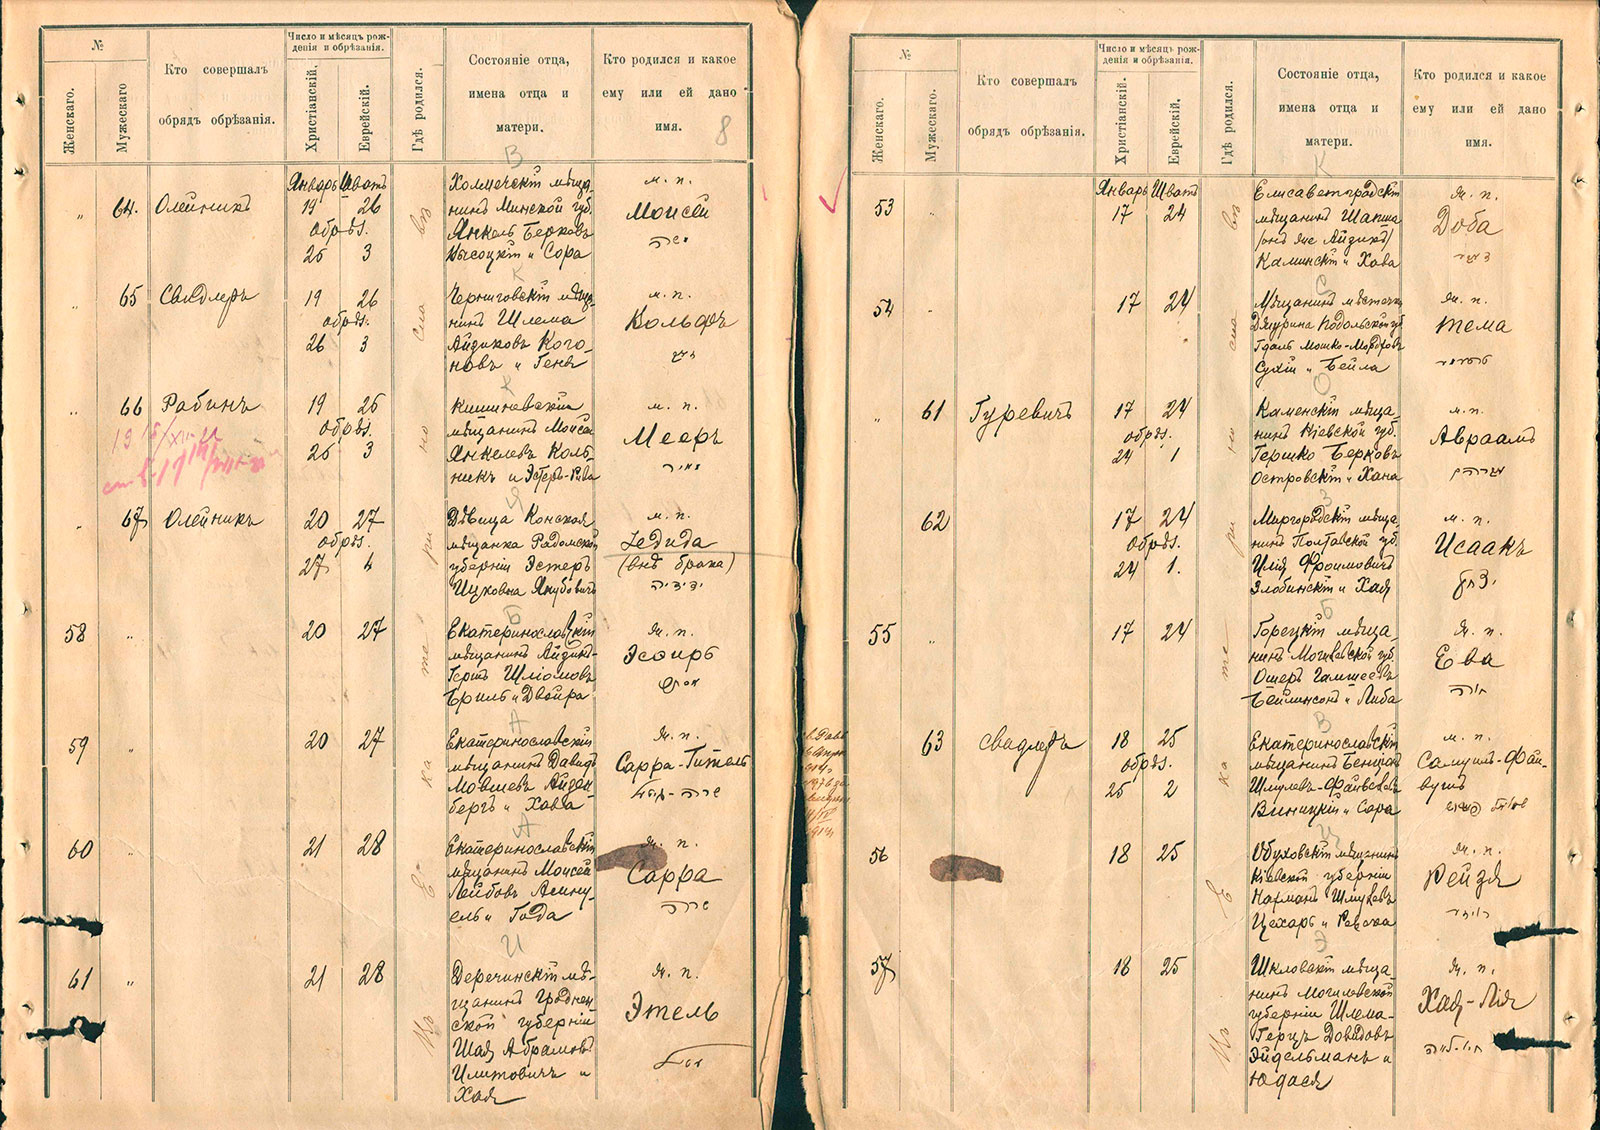 №
Женскаго.
Мужескаго
Кто совершалъ
обрядъ обрѣзанія.
Число и мѣсяцъ рож-
денія и обрѣзанія.
Христіанскій.
Еврейскій.
Гдѣ родился.
Состояніе отца,
имена отца и
матери.
Кто родился и какое
ему или ей дано
имя.
8
Январь Шватъ
„ 64. Олейникъ 19 26
обрѣз.
25 3
Холмечскій мѣща-
нинъ Минской губ.
Янкель Берковъ
Высоцкій и Сора
м. п.
Моисей
משה
„ 65 Свидлеръ 19 26
обрѣз.
26 3
Черниговскій мѣща-
нинъ Шлема
Айзиковъ Кого-
новъ и Геня
м. п.
Вольфъ
„ 66 Рабинъ 19 26
обрѣз.
25 3
Кишиневскій
мѣщанинъ Моисей
Янкелевъ Коль-
никъ и Эстеръ-Рива
м. п.
Мееръ
מאיר
„ 67 Олейникъ 20 27
обрѣз.
27 4
Дѣвица Конская
мѣщанка Радомской
губерніи Эстеръ
Ицковна Якубовичъ
м. п.
Іедида
(внѣ брака)
ידידיה
58 „ 20 27
Екатеринославскій
мѣщанинъ Айзикъ-
Герть Шліомовъ
Бриль и Двойра
ж. п.
Эсѳирь
אסתר
59 „ 20 27
Екатеринославскій
мѣщанинъ Давидъ
Мовшевъ Айзен-
бергъ и Хава
ж. п.
Сарра-Гитель
שרה-גיטל
60 „ 21 28
Екатеринославскій
мѣщанинъ Моисей
Лейбовъ
ель и Года
ж. п.
Сарра
שרה
61 „ 21 28
Деречинскій мѣ-
щанинъ Гроднен-
ской губерніи
Шая Абрамовъ
Илитовичъ и
Хая
ж. п.
Этель
Въ Екатеринославѣ
№
Женскаго.
Мужескаго.
Кто совершалъ
обрядъ обрѣзанія.
Число и мѣсяцъ рож-
денія и обрѣзанія.
Христіанскій.
Еврейскій.
Гдѣ родился.
Состояніе отца,
имена отца и
матери.
Кто родился и какое
ему или ей дано
имя.
Январь Шватъ
53 „ 17 24
Елисаветградскій
мѣщанинъ Шапша
/онъ же Айзикъ/
Каминскій и Хава
ж. п.
Доба
54 „ 17 24
Мѣщанинъ мѣстечка
Джурина Подольской губ.
Гдаль Мошко-Мордковъ
Сухій и Бейла
ж. п.
Тема
„ 61 Гуревичъ 17 24
обрѣз.
24 1
Каменскій мѣща-
нинъ Кіевской губ.
Гершко Берковъ
Островскій и Хана
м. п.
Авраамъ
אברהם
62 17 24
обрѣз.
24 1.
Миргородскій мѣща-
нинъ Полтавской губ.
Илія Фроимовичъ
Злобинскій и Хая
м. п.
Исаакъ
יצחק
55 „ 17 24
Горецкій мѣща-
нинъ Могилевской губ.
Ошеръ
Бейлинсонъ и Либа
ж. п.
Ева
חוה
63 Свадлеръ 18 25
обрѣз.
25 2
Екатеринославскій
мѣщанинъ Бенціонъ
Шмулевъ-Файвишевъ
Виницкій и Сора
м. п.
Самуилъ-Фай-
вушъ
שמואל פייוויש
56 18 25
Обуховскій мѣщанинъ
Кіевской губерніи
Нахманъ Шмулевъ
Цехаръ и Ревека
ж. п.
Рейзя
רייזי
57 18 25
Шкловскій мѣща-
нинъ Могилевской
губерніи Шлема-
Герцъ Довидовъ
Эйдельманъ и
Юдася
ж. п.
Хая-Лія
חיה-לאה
Въ Екатеринославѣ